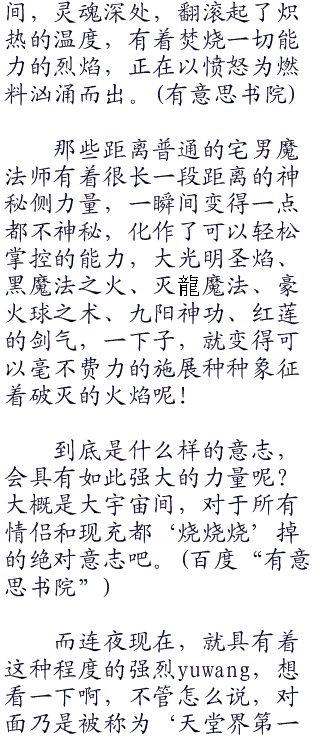 间，灵魂深处，翻滚起了炽
热的温度，有着焚烧一切能
力的烈焰，正在以愤怒为燃
料汹涌而出。(有意思书院)
那些距离普通的宅男魔
法师有着很长一段距离的神
秘侧力量，一瞬间变得一点
都不神秘，化作了可以轻松
掌控的能力，大光明圣焰、
黑魔法之火、灭龍魔法、豪
火球之术、九阳神功、红莲
的剑气，一下子，就变得可
以毫不费力的施展种种象征
着破灭的火焰呢！
到底是什么样的意志，
会具有如此强大的力量呢？
大概是大宇宙间，对于所有
情侣和现充都‘烧烧烧’掉
的绝对意志吧。(百度“有意
思书院”)
而连夜现在，就具有着
这种程度的强烈yuwang，想
看一下啊，不管怎么说，对
面乃是被称为‘天堂界第一